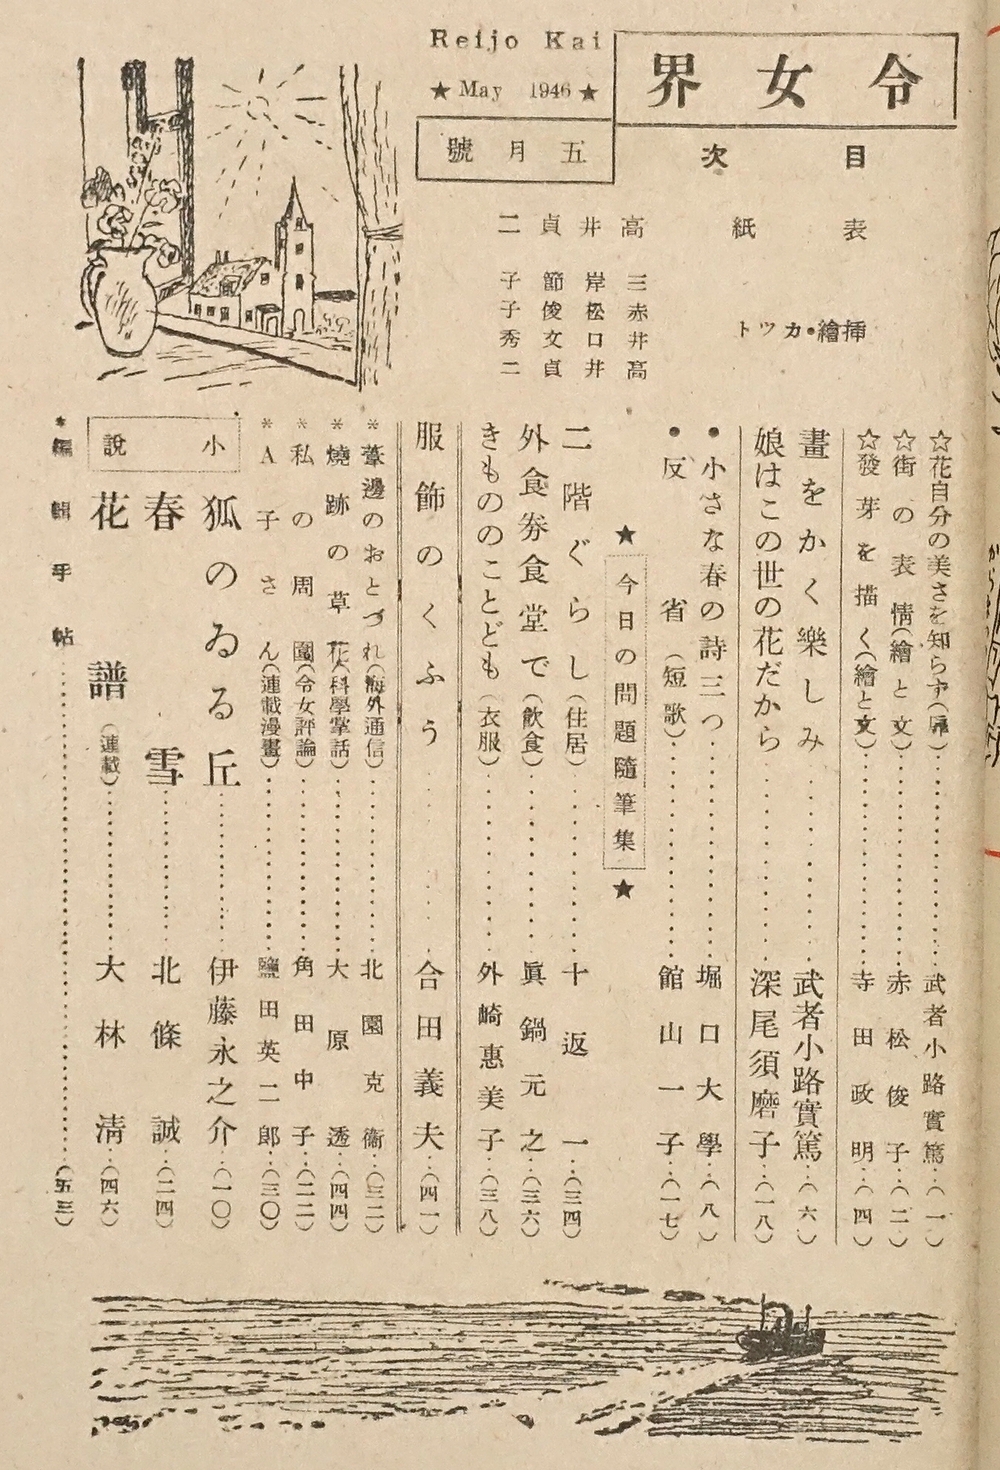 Reijo Kai
★ May 1946 ★
令女界
五月號
目次
表紙 高井貞二
挿繪・カット 三岸節子
赤松俊子
井口文秀
高井貞二
☆花自分の美さを知らず(扉)……武者小路實篤…(一)
☆街の表情(繪と文)……赤松俊子…(二)
☆發芽を描く(繪と文)……寺田政明…(四)
畫をかく樂しみ……武者小路實篤…(六)
娘はこの世の花だから……深尾須磨子…(一八)
●小さな春の詩三つ……堀口大學…(八)
●反省(短歌)……館山一子…(一七)
★今日の問題隨筆集★
二階ぐらし(住居)……十返一…(三四)
外食券食堂で(飮食)……眞鍋元之…(三六)
きもののことども(衣服)……外崎惠美子…(三八)
服飾のくふう……合田義夫…(四一)
*葦邊のおとづれ(海外通信)……北園克衞…(三二)
*燒跡の草花(科學掌話)……大原透…(四四)
*私の周圍(令女評論)……角田中子…(二二)
*A子さん(連載漫畫)……鹽田英二郎…(三〇)
小説
狐のゐる丘……伊藤永之介…(一〇)
春雪……北條誠…(二四)
花譜(連載)……大林清…(四六)
*編輯手帖……(五三)